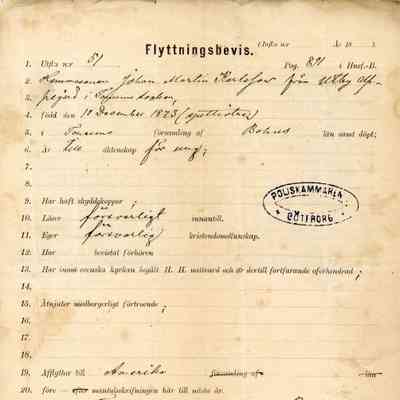 Flyttningsbevis. (Utfls nr År 18 ).
1. Utfls nr 51 Pag. 811 i Husf.-B.
2. Johan Martin Karlsson från
3. i
4. född den 10 December 1873 (sjuttiotre)
5. i församling af Bohus län samt döpt;
6. Är till äktenskap för ung;
7.
8.
9. Har haft skyddskoppor;
10. Läser försvarligt innantill.
11. Eger försvarlig kristendomskunskap.
12. Har bevistat förhören
13. Har inom svenska kyrkan begått H. H. nattvard och är dertill fortfarande oförhindrad;
14.
15. Åtnjuter medborgerligt förtroende;
16.
17.
18.
19. Afflyttar till Amerika församling af län
20. före efter mantalsskrifningen här till nästa år.
POLISKAMMAREN
GÖTEBORG